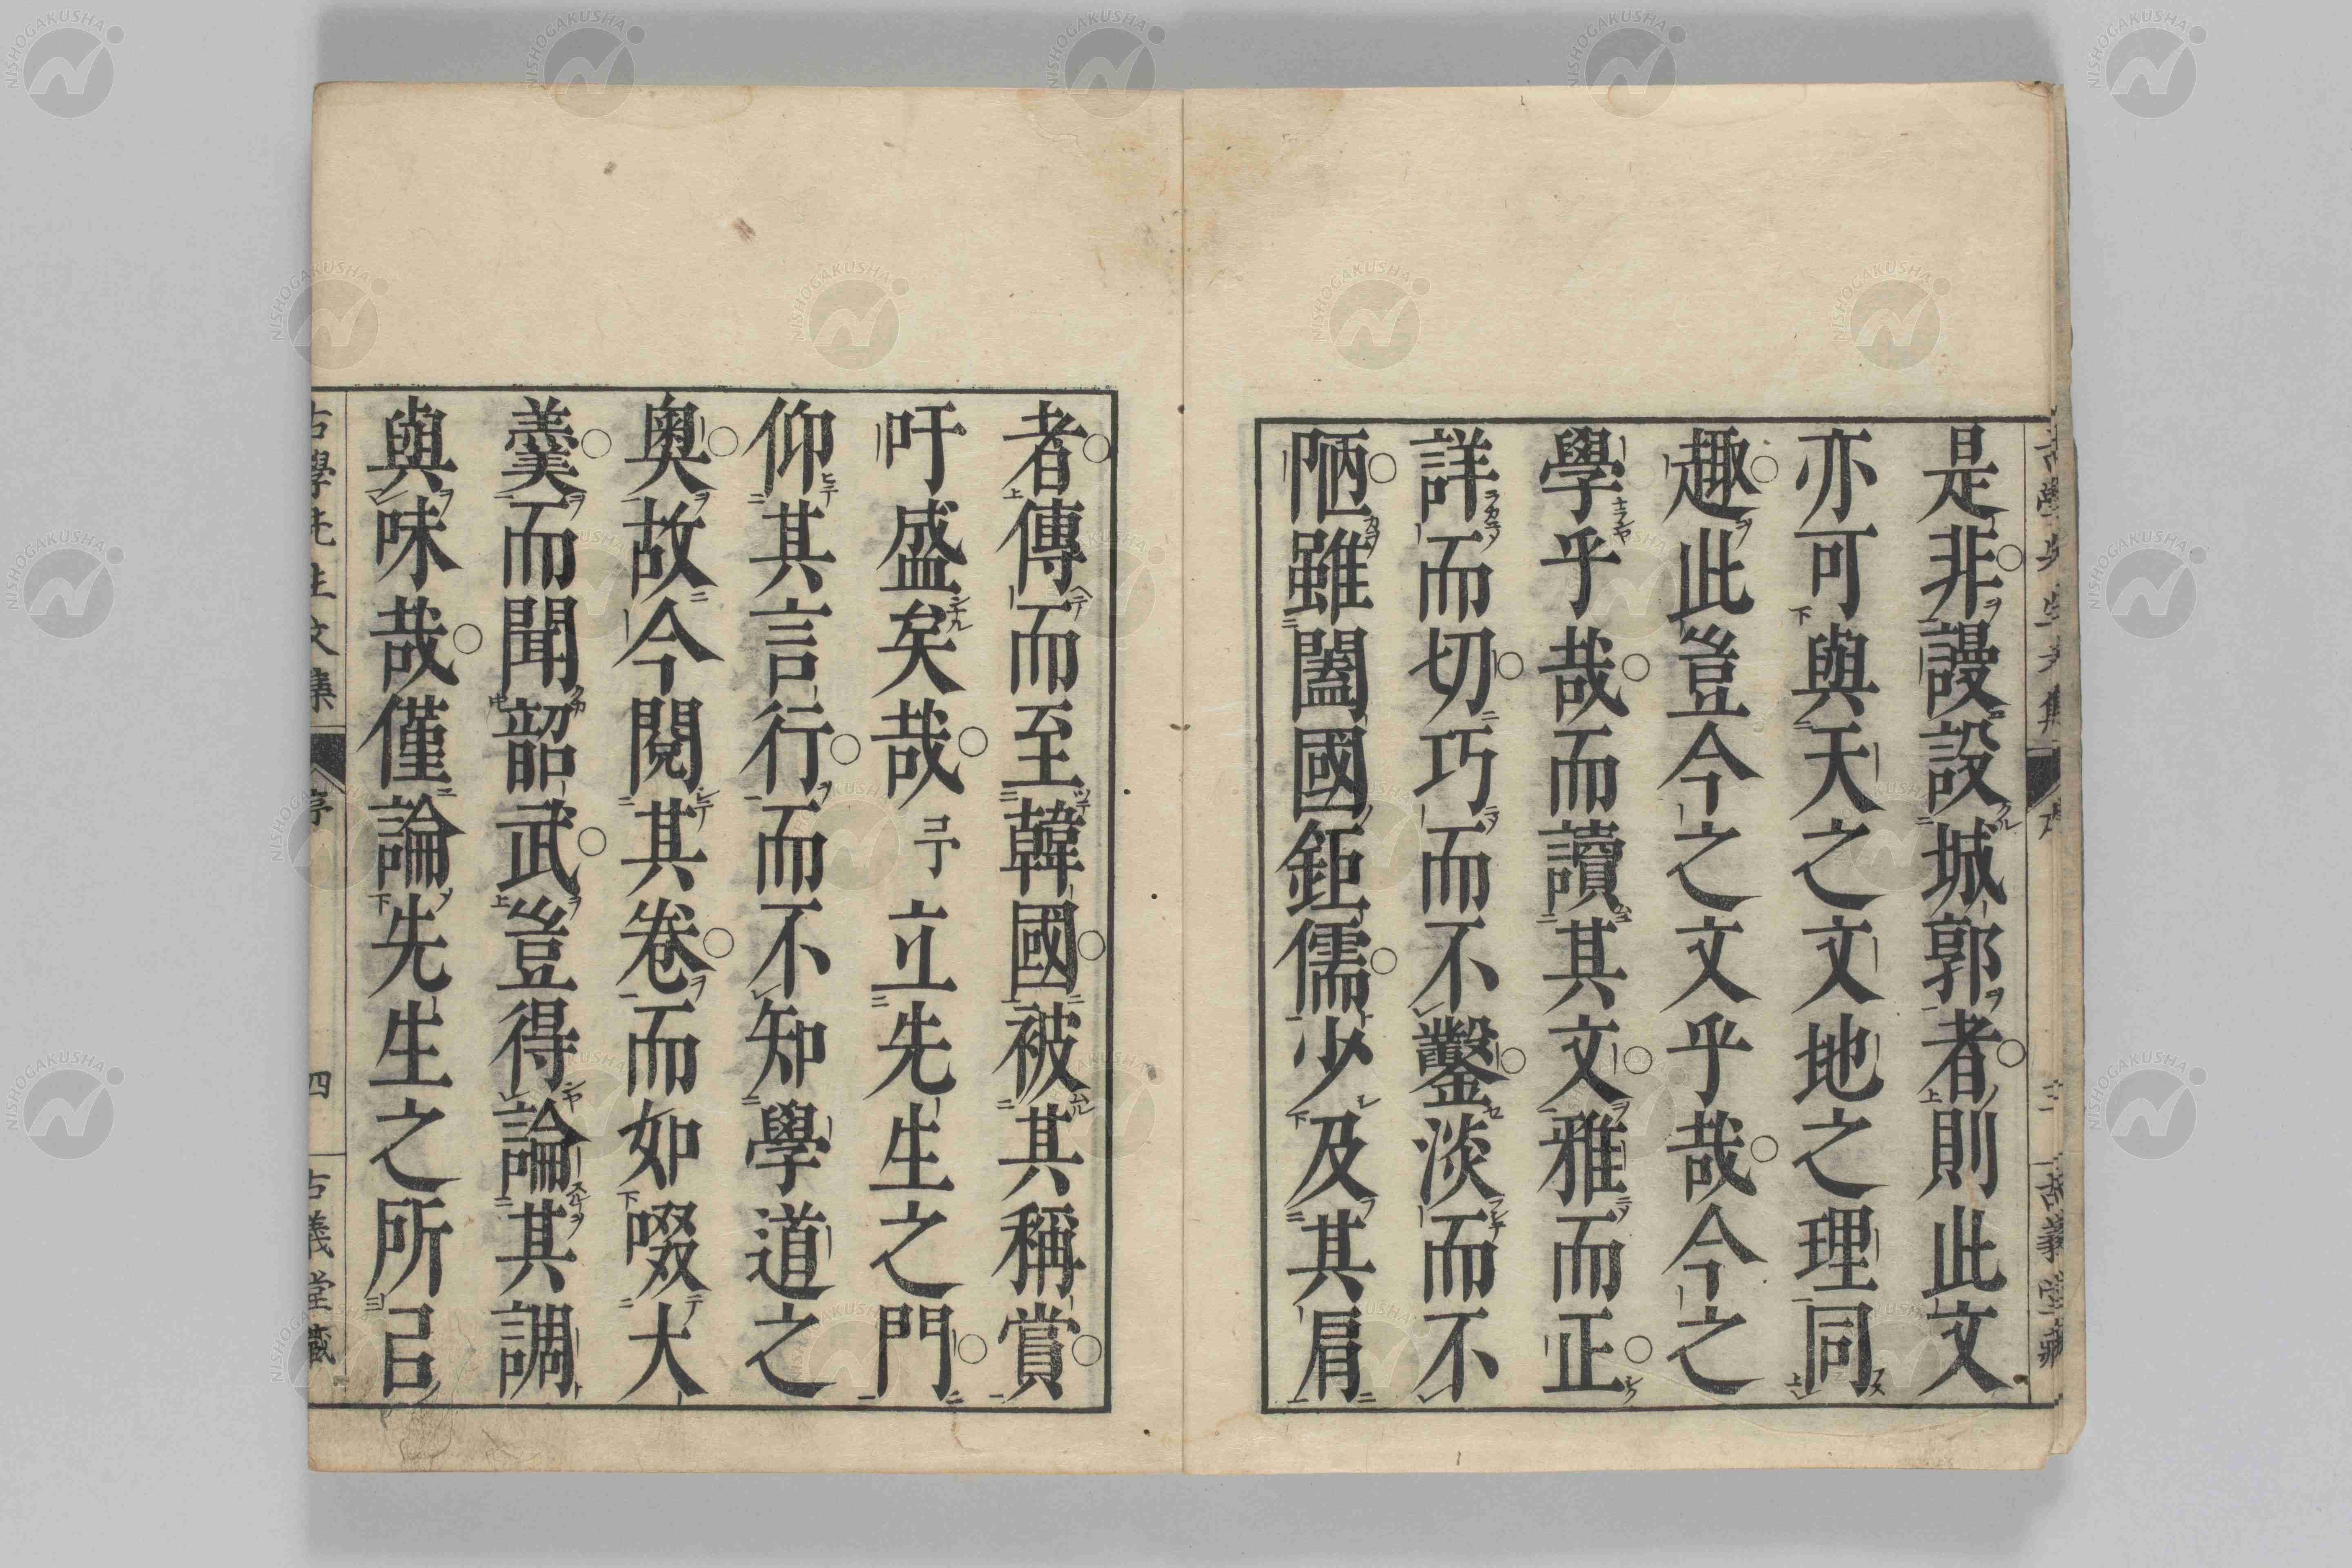 是非謾設城郭者則此文
亦可與天之文地之理同
趣此豈今之文乎哉今之
學乎哉而讀其文雅而正
詳而切巧而不鑿淡而不
陋雖闔國鉅儒少及其肩
者傳而至韓國被其稱賞
吁盛矣哉予立先生之門
仰其言行而不知學道之
奧故今閱其卷而如啜大
羹而聞韶武豈得論其調
與味哉僅論先生之所己
古學先生文集 序 四 古義堂藏
NISHOGAKUSHA